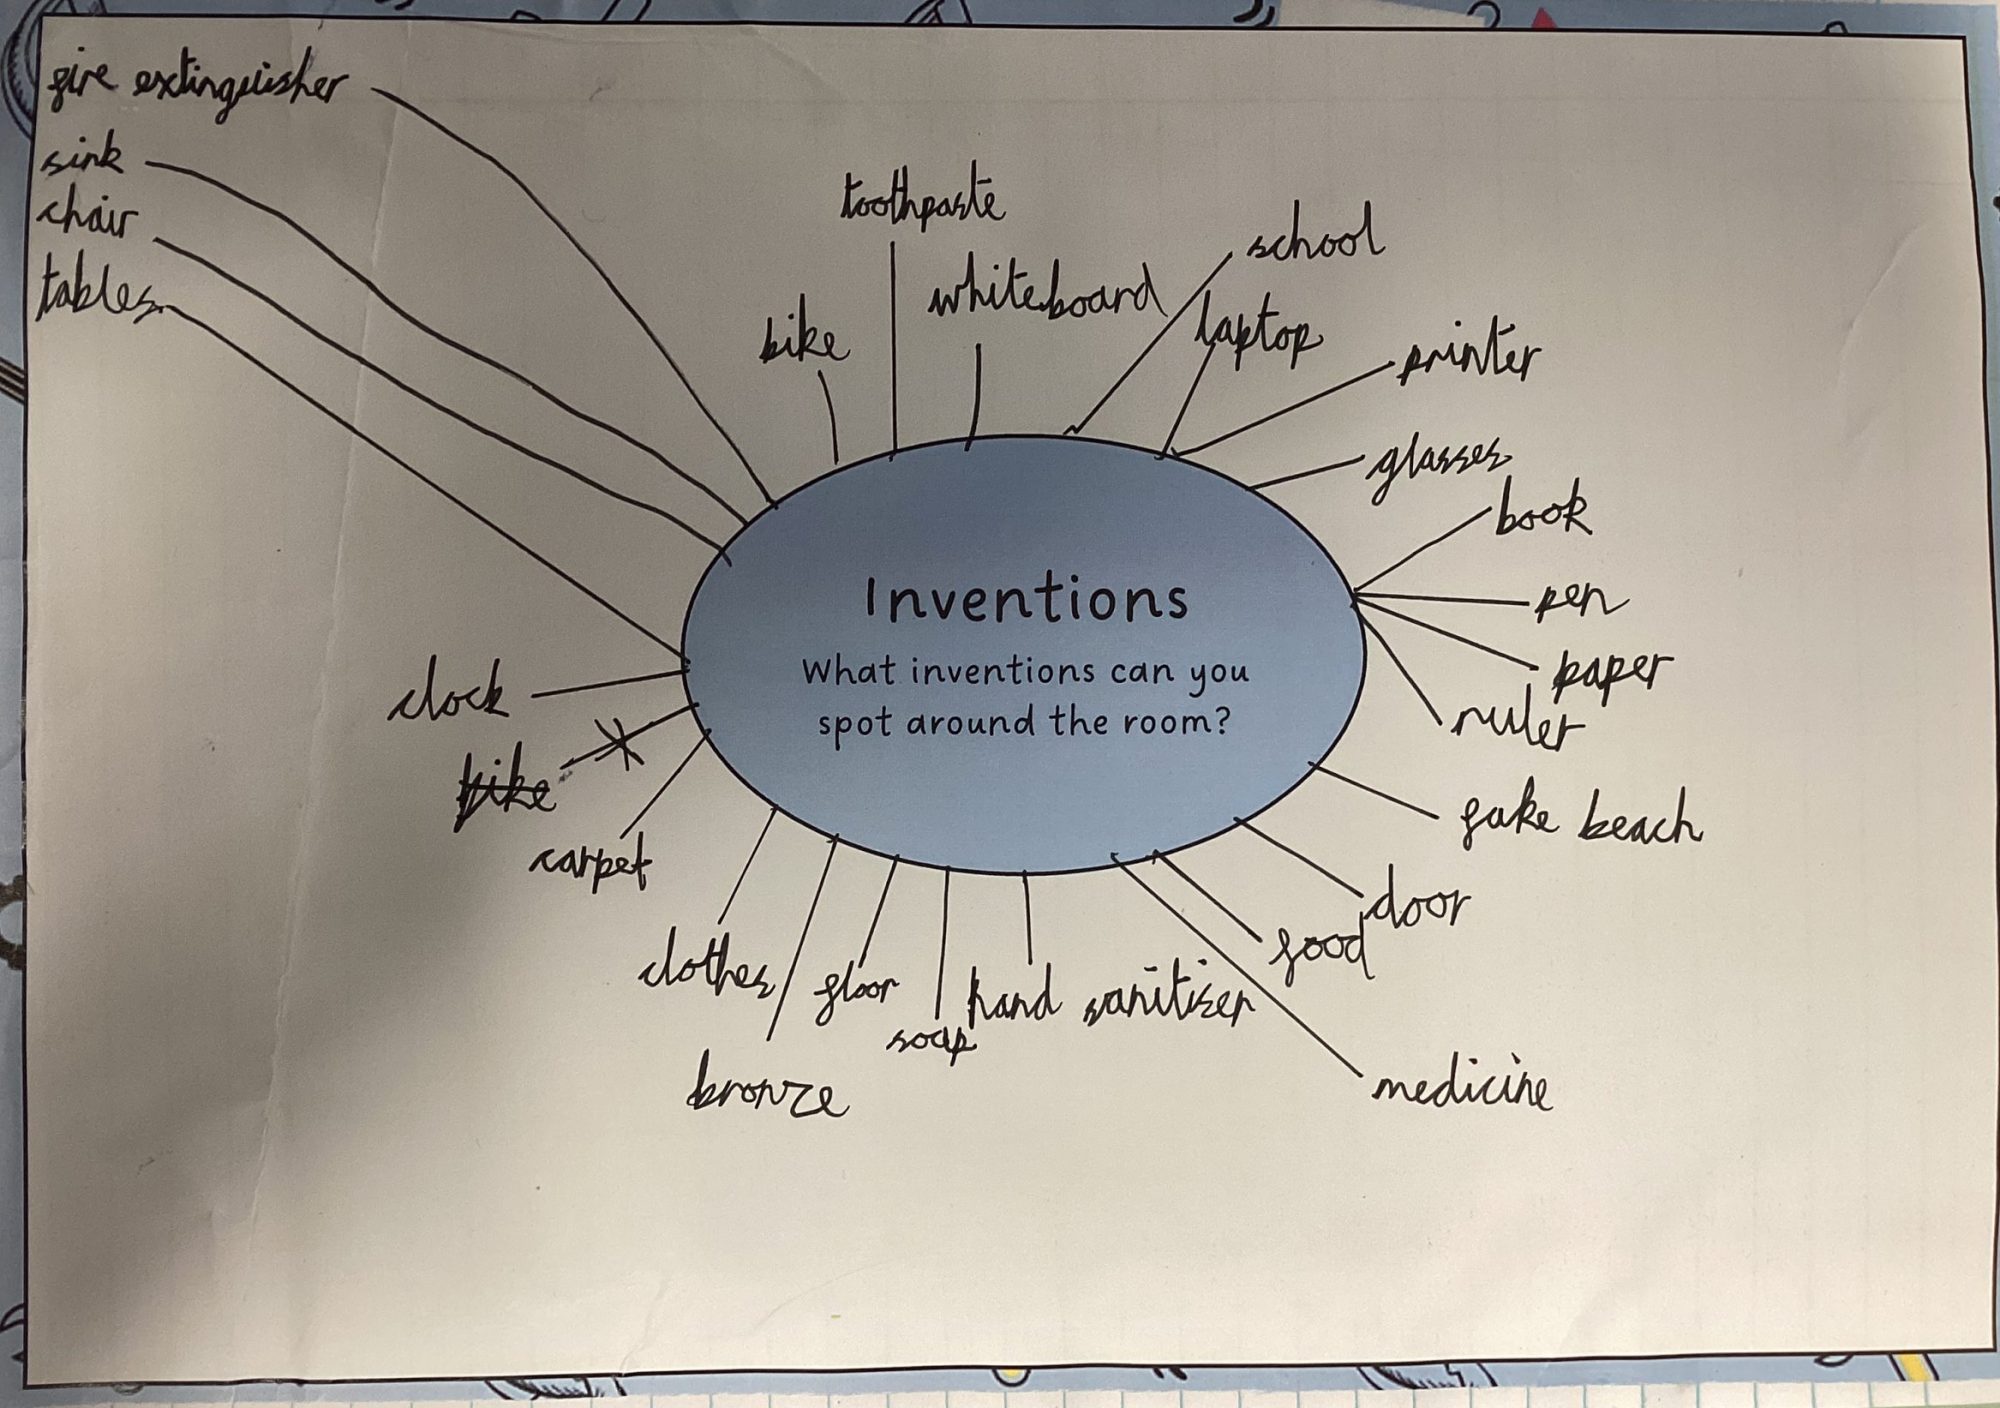 fire extinguisher
sink
chair
tables
bike
toothpaste
whiteboard
school
laptop
printer
glasses
book
pen
paper
ruler
fake beach
door
food
medicine
hand sanitiser
soap
floor
bronze
clothes
carpet
bike
clock
Inventions
What inventions can you
spot around the room?